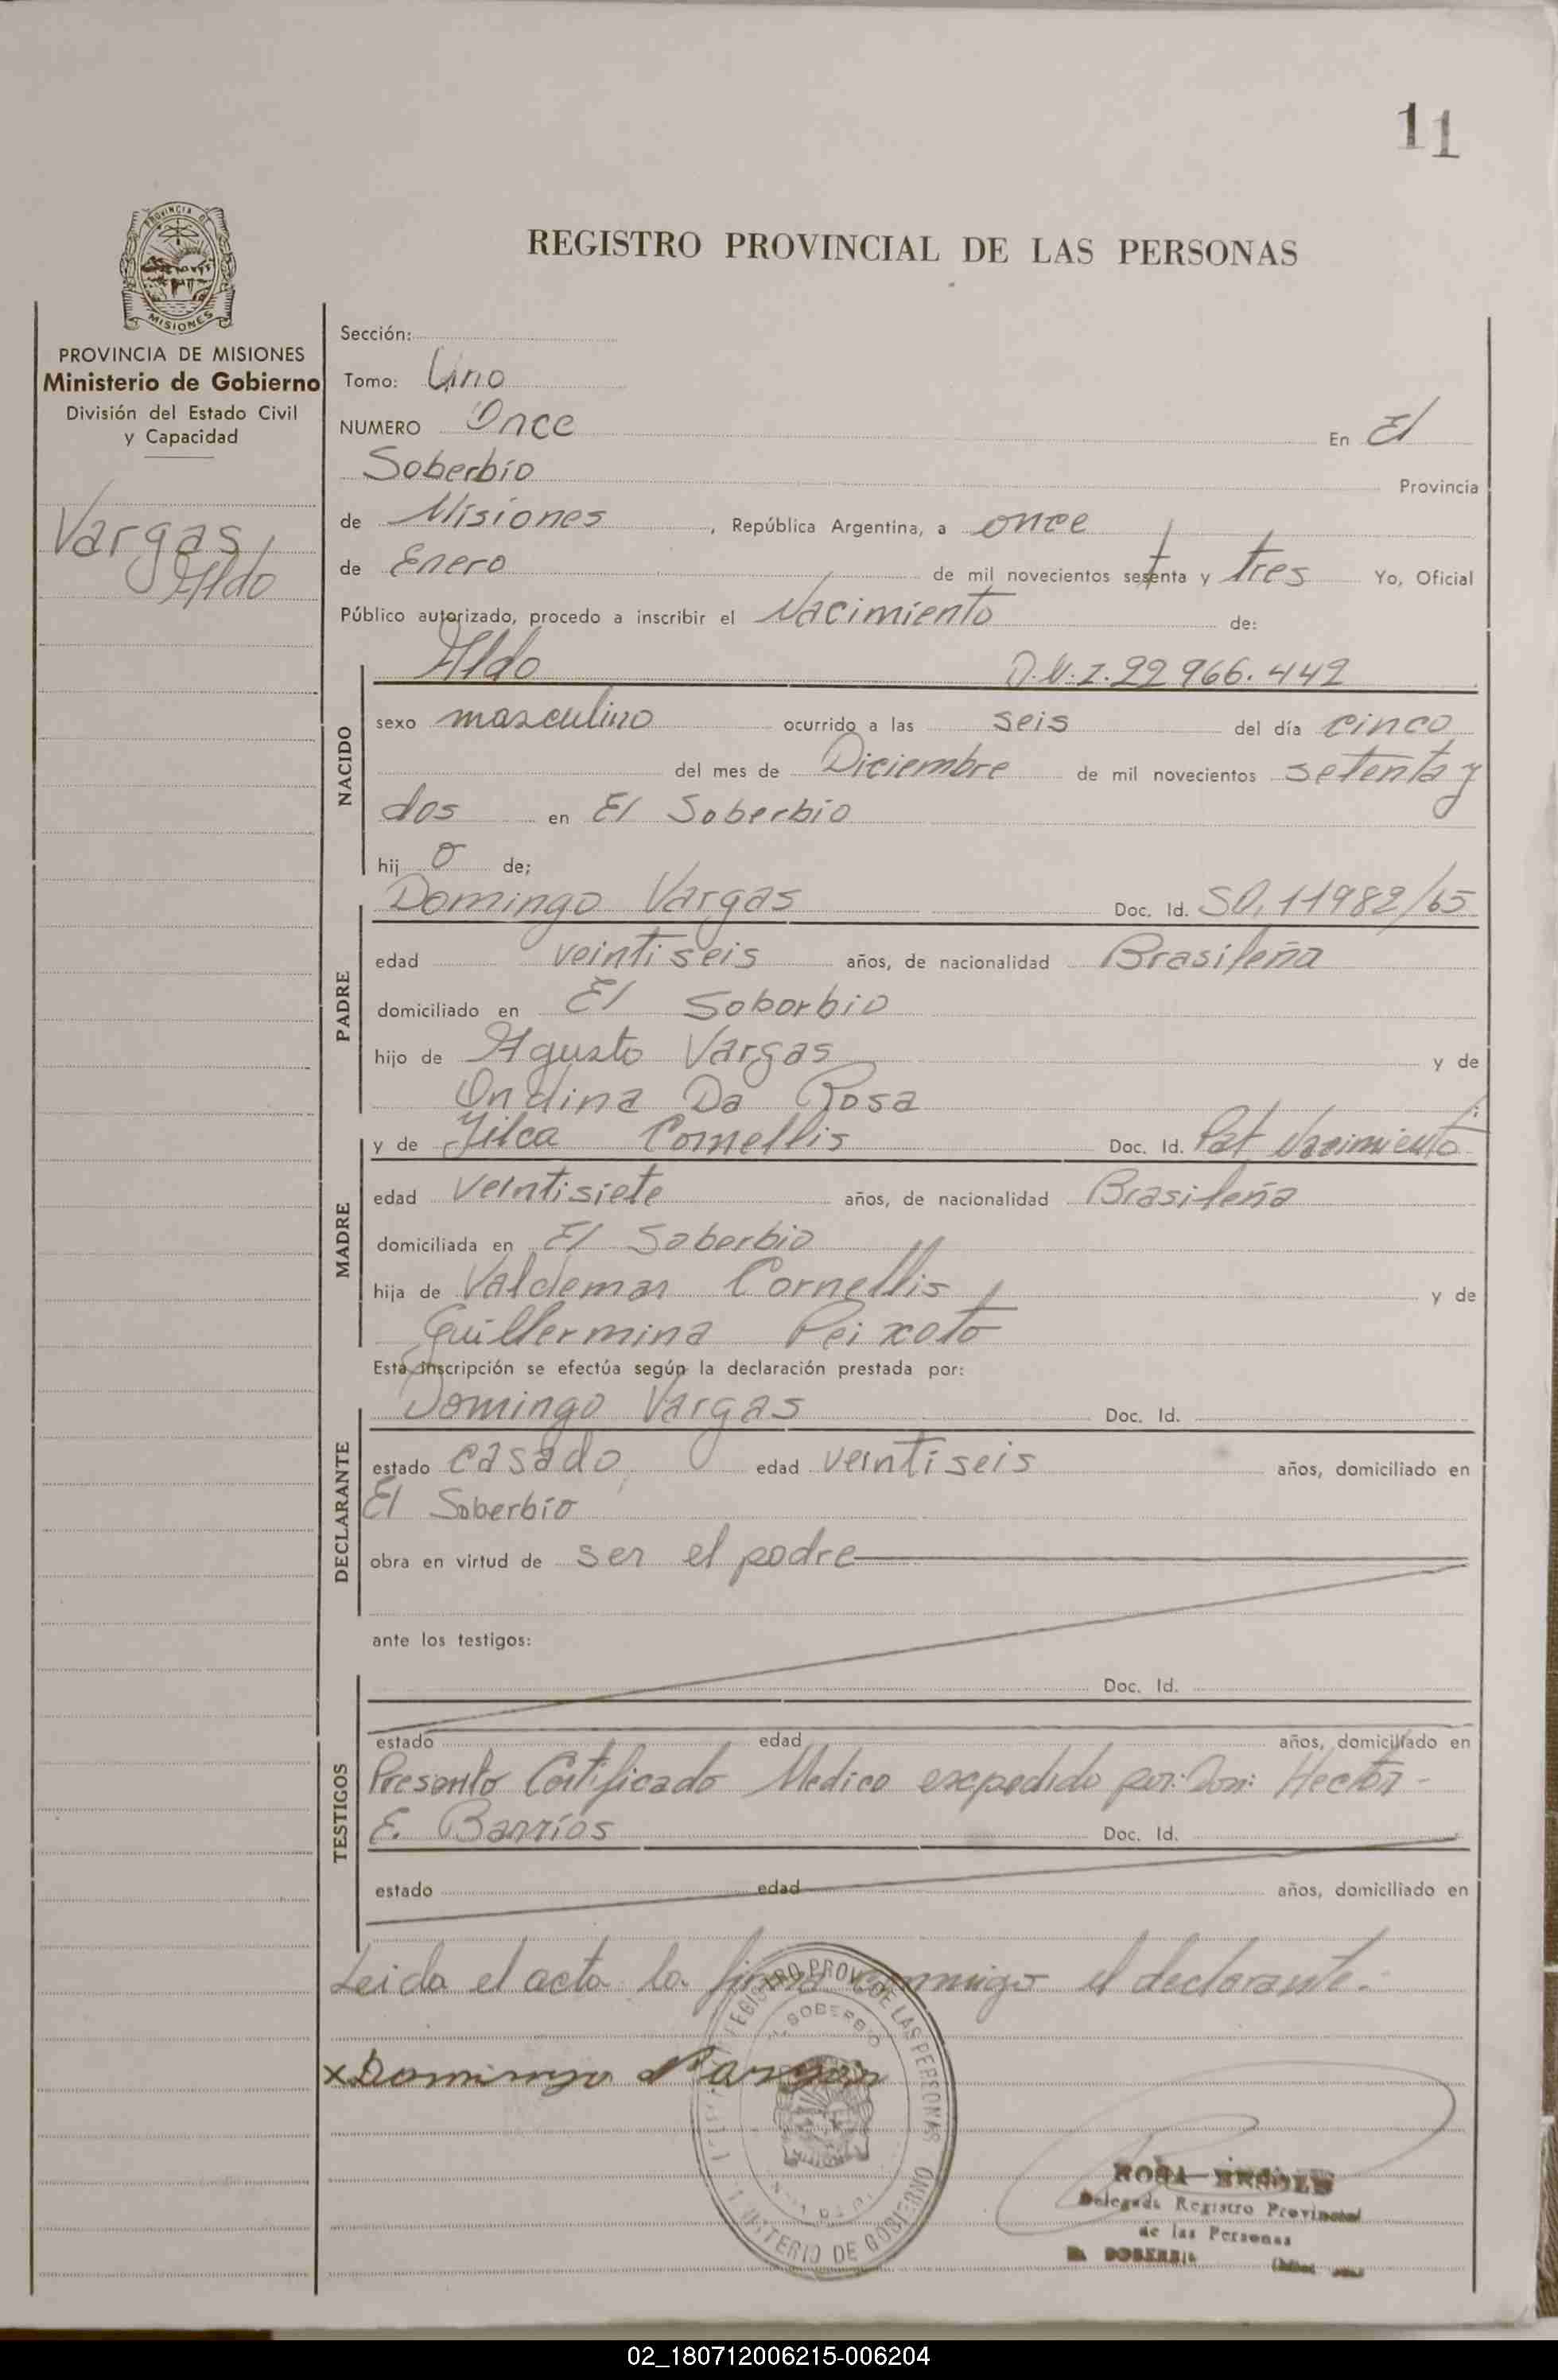 11
PROVINCIA DE MISIONES
REGISTRO PROVINCIAL DE LAS PERSONAS
PROVINCIA DE MISIONES
Ministerio de Gobierno
División del Estado Civil
y Capacidad
Vargas,
Aldo
Sección:
Tomo: Uno
NUMERO Once En El
Soberbio Provincia
de Misiones, República Argentina, a once
de Enero de mil novecientos setenta y tres Yo, Oficial
Público autorizado, procedo a inscribir el Nacimiento de:
Aldo D.N.I. 22 966.442
NACIDO
sexo masculino ocurrido a las seis del día cinco
del mes de Diciembre de mil novecientos setenta y
dos en El Soberbio
hijo de;
PADRE
Domingo Vargas Doc. Id. SO. 11982/65
edad veintiseis años, de nacionalidad Brasileña
domiciliado en El Soborbio
hijo de Agusto Vargas y de
Ondina Da Rosa
MADRE
y de Jilca Cornellis Doc. Id. Pat Nacimiento
edad veintisiete años, de nacionalidad Brasileña
domiciliada en El Soberbio
hija de Valdemar Cornellis y de
Guillermina Peixoto
Esta inscripción se efectúa según la declaración prestada por:
DECLARANTE
Domingo Vargas Doc. Id.
estado casado, edad veintiseis años, domiciliado en
El Soberbio
obra en virtud de ser el padre
ante los testigos:
TESTIGOS
Doc. Id.
estado edad años, domiciliado en
Presento Certificado Medico expedido por: Don: Hector-
E. Barrios Doc. Id.
estado edad años, domiciliado en
Leida el acta la firma conmigo el declarante.-
REGISTRO PROV. DE LAS PERSONAS
SOBERBIO
MINISTERIO DE GOBIERNO
x Domingo Vargas
ROSA
Delegada Registro Provincial
de las Personas
EL SOBERBIO
02_180712006215-006204